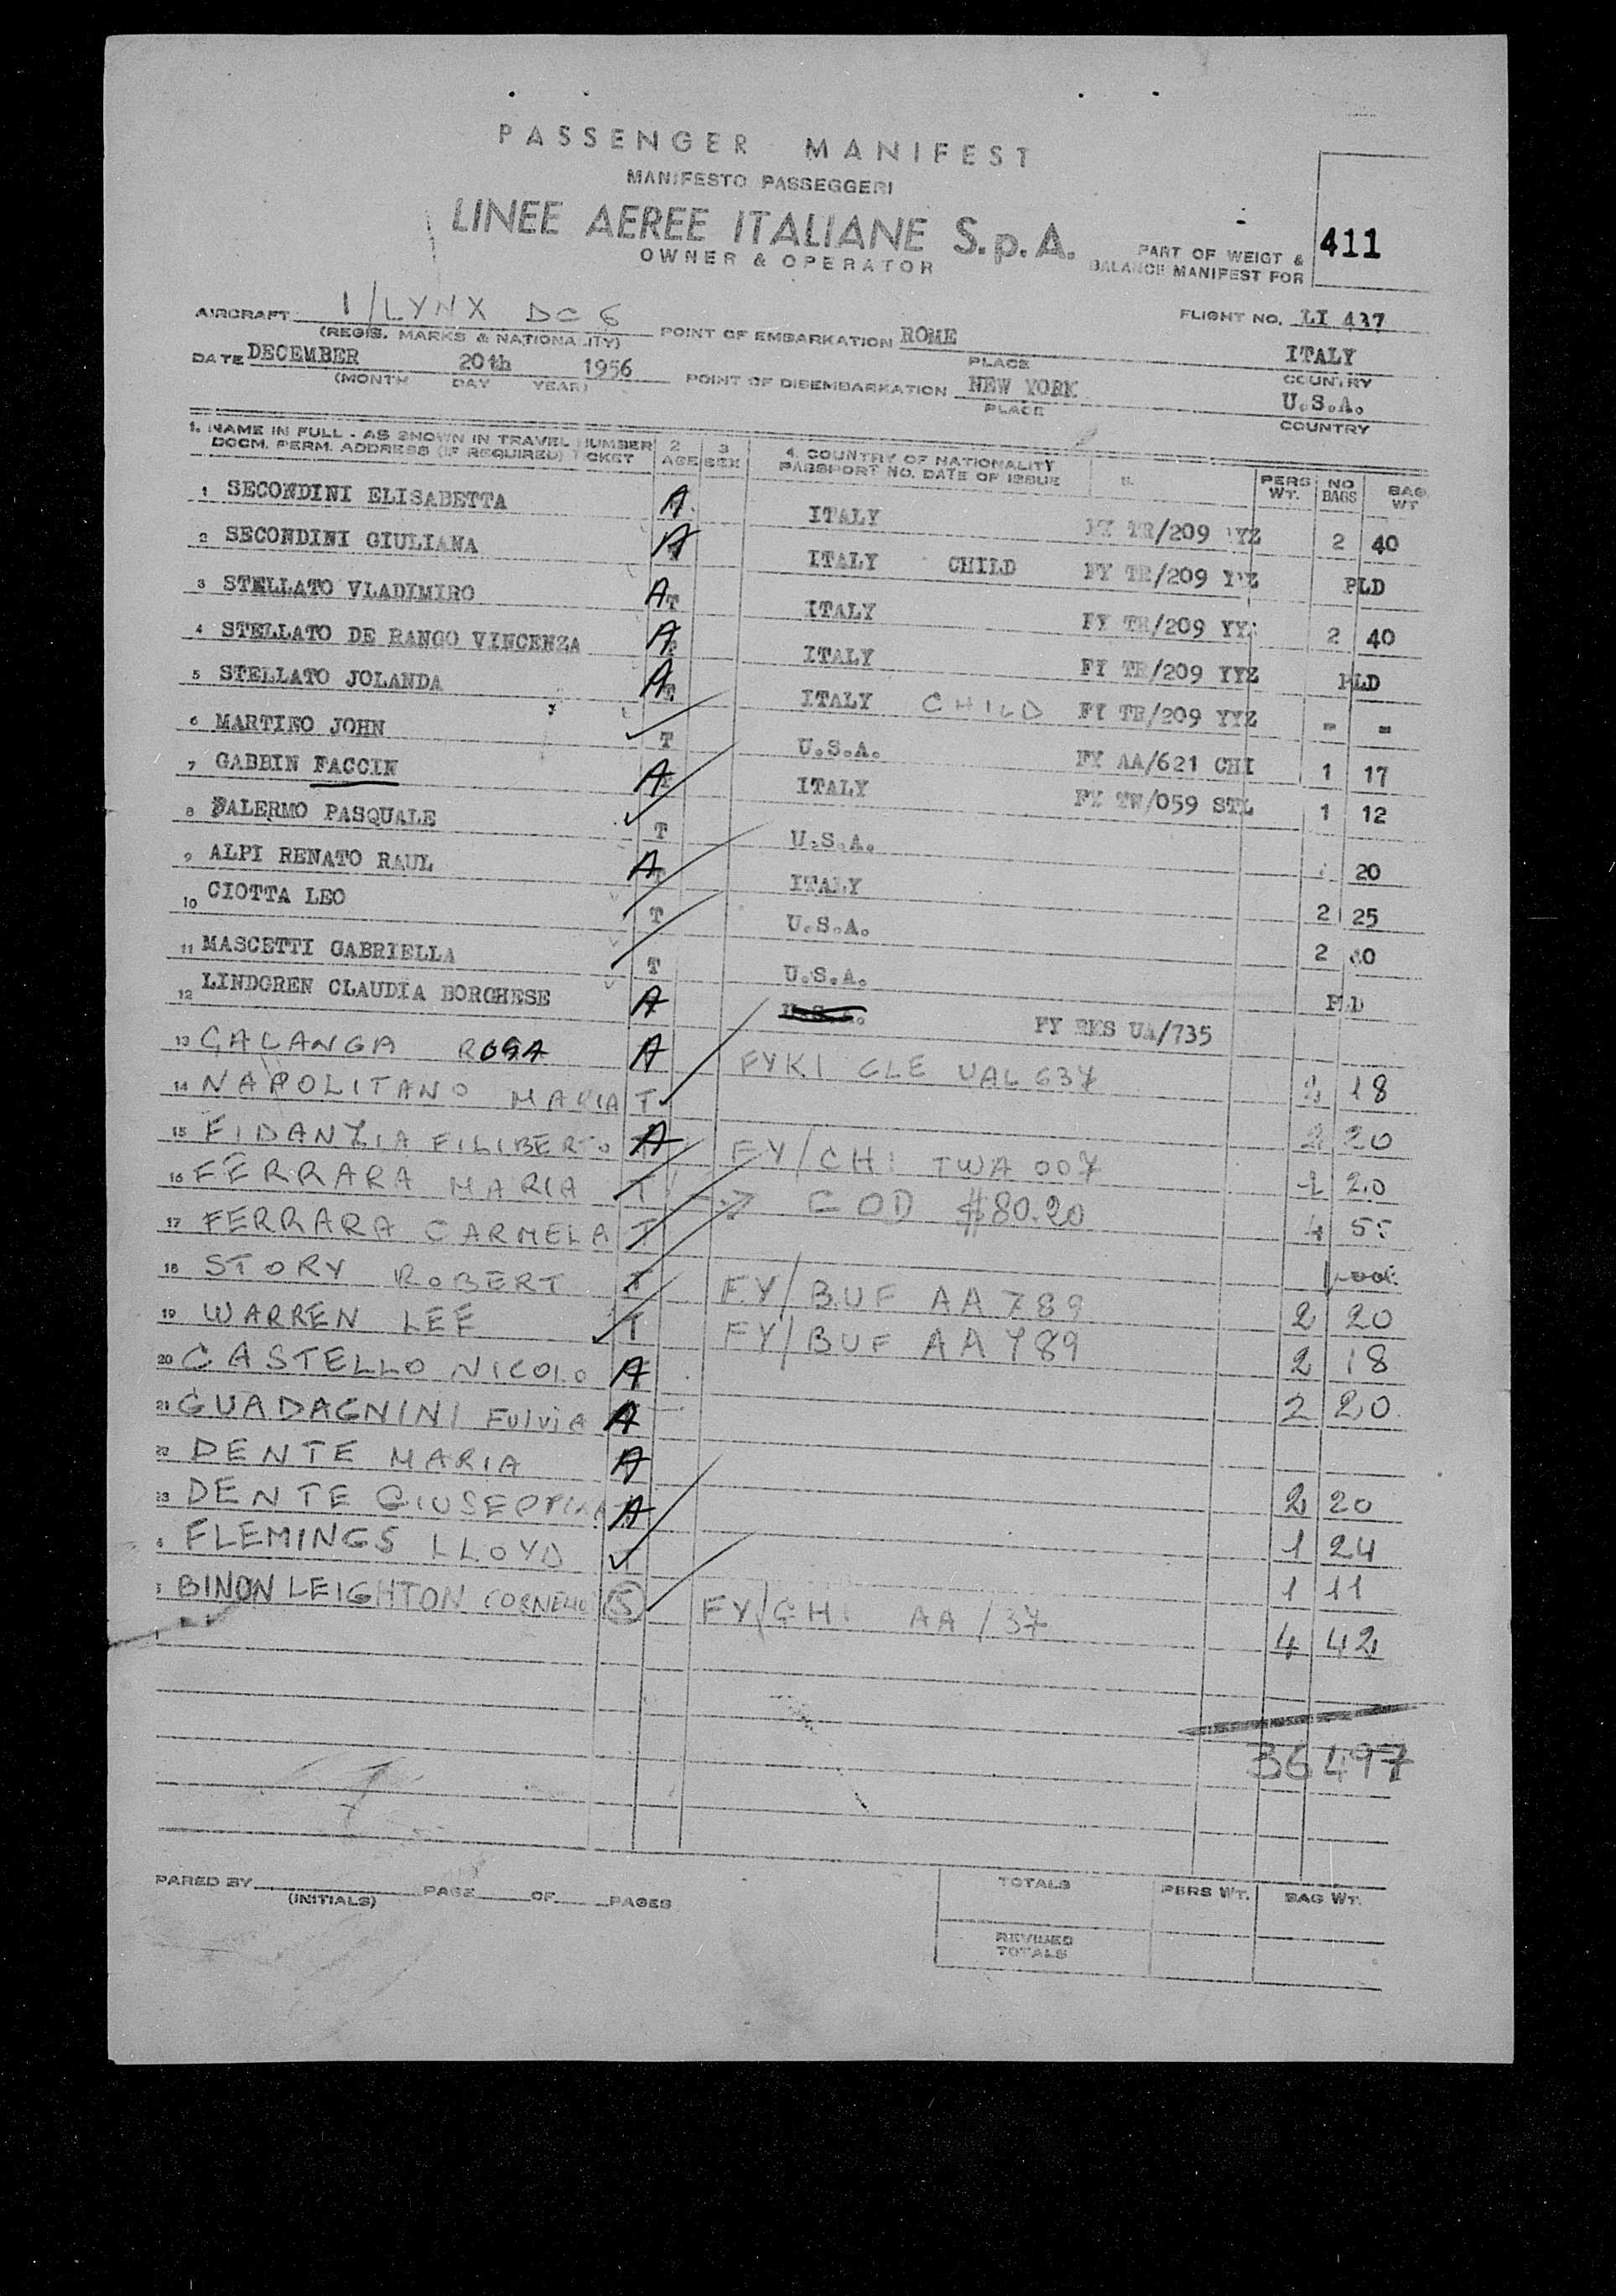 PASSENGER MANIFEST
MANIFESTO PASSEGGERI
LINEE AEREE ITALIANE S.p.A.
OWNER & OPERATOR
PART OF WEIGT &
BALANCE MANIFEST FOR
411
AIRCRAFT I/LYNX DC 6
(REGIS. MARKS & NATIONALITY)
POINT OF EMBARKATION ROME
PLACE
FLIGHT NO. LI 437
ITALY
COUNTRY
DATE DECEMBER 20th 1956
(MONTH DAY YEAR)
POINT OF DISEMBARKATION NEW YORK
PLACE
U.S.A.
COUNTRY
1. NAME IN FULL - AS SHOWN IN TRAVEL NUMBER 2 3 4. COUNTRY OF NATIONALITY
DOCM. PERM. ADDRESS (IF REQUIRED) TICKET AGE SEX PASSPORT NO. DATE OF ISSUE PERS WT. NO BAGS BAG WT
1 SECONDINI ELISABETTA A ITALY FY TR/209 YYZ 2 40
2 SECONDINI GIULIANA A ITALY CHILD FY TR/209 YYZ PLD
3 STELLATO VLADIMIRO A T ITALY FY TR/209 YYZ 2 40
4 STELLATO DE RANGO VINCENZA A ITALY FY TR/209 YYZ PLD
5 STELLATO JOLANDA A T ITALY CHILD FY TR/209 YYZ - -
6 MARTINO JOHN T U.S.A. FY AA/621 CHI 1 17
7 GABBIN FACCIN A ITALY FY TW/059 STL 1 12
8 PALERMO PASQUALE T U.S.A. 20
9 ALPI RENATO RAUL A ITALY 2 25
10 CIOTTA LEO T U.S.A. 2
11 MASCETTI GABRIELLA T U.S.A. PLD
12 LINDGREN CLAUDIA BORGHESE A U.S.A. FY RKS UA/735
13 GALANGA ROSA A FYKI CLE UAL 637 18
14 NAPOLITANO MARIA T 2 20
15 FIDANZIA FILIBERTO A FY/CHI TWA 007 20
16 FERRARA MARIA T COD $80.20 4
17 FERRARA CARMELA T
18 STORY ROBERT T FY/BUF AA 789 2 20
19 WARREN LEE T FY/BUF AA 789 2 18
20 CASTELLO NICOLO A 2 20
21 GUADAGNINI Fulvia A
22 DENTE MARIA A 2 20
23 DENTE GIUSEPPINA A 1 24
FLEMINGS LLOYD 1 11
BINON LEIGHTON CORNELIO 5 FY/CHI AA/37 4 42
36 497
PARED BY
(INITIALS)
PAGE OF PAGES
TOTALS PERS WT. BAG WT.
REVISED
TOTALS